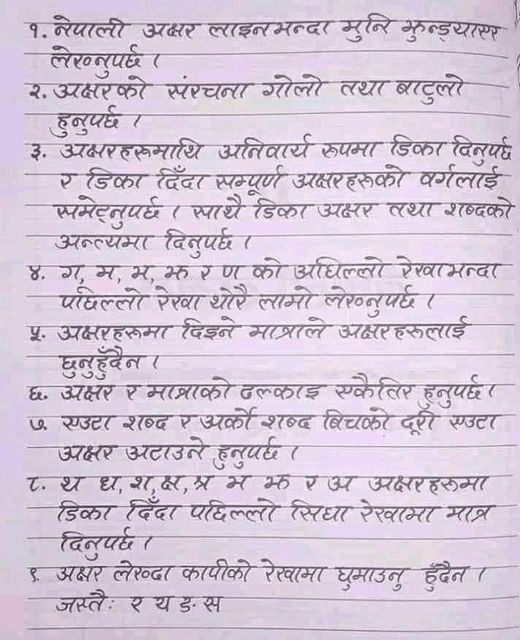 १. नेपाली अक्षर लाइनभन्दा मुनि झुन्ड्याएर
लेख्नुपर्छ ।
२. अक्षरको संरचना गोलो तथा बाटुलो
हुनुपर्छ ।
३. अक्षरहरूमाथि अनिवार्य रूपमा डिका दिनुपर्छ
र डिका दिँदा सम्पूर्ण अक्षरहरूको वर्गलाई
समेट्नुपर्छ । साथै डिका अक्षर तथा शब्दको
अन्त्यमा दिनुपर्छ ।
४. ग, म, भ, झ र ण को अघिल्लो रेखाभन्दा
पछिल्लो रेखा थोरै लामो लेख्नुपर्छ ।
५. अक्षरहरूमा दिइने मात्राले अक्षरहरूलाई
छुनुहुँदैन ।
६. अक्षर र मात्राको ढल्काइ एकैतिर हुनुपर्छ ।
७. एउटा शब्द र अर्को शब्द बिचको दूरी एउटा
अक्षर अटाउने हुनुपर्छ ।
८. थ ध, श, क्ष, श्र भ झ र अ अक्षरहरूमा
डिका दिँदा पछिल्लो सिधा रेखामा मात्र
दिनुपर्छ ।
९. अक्षर लेख्दा कापीको रेखामा घुमाउनु हुँदैन ।
जस्तै: र य ङ स